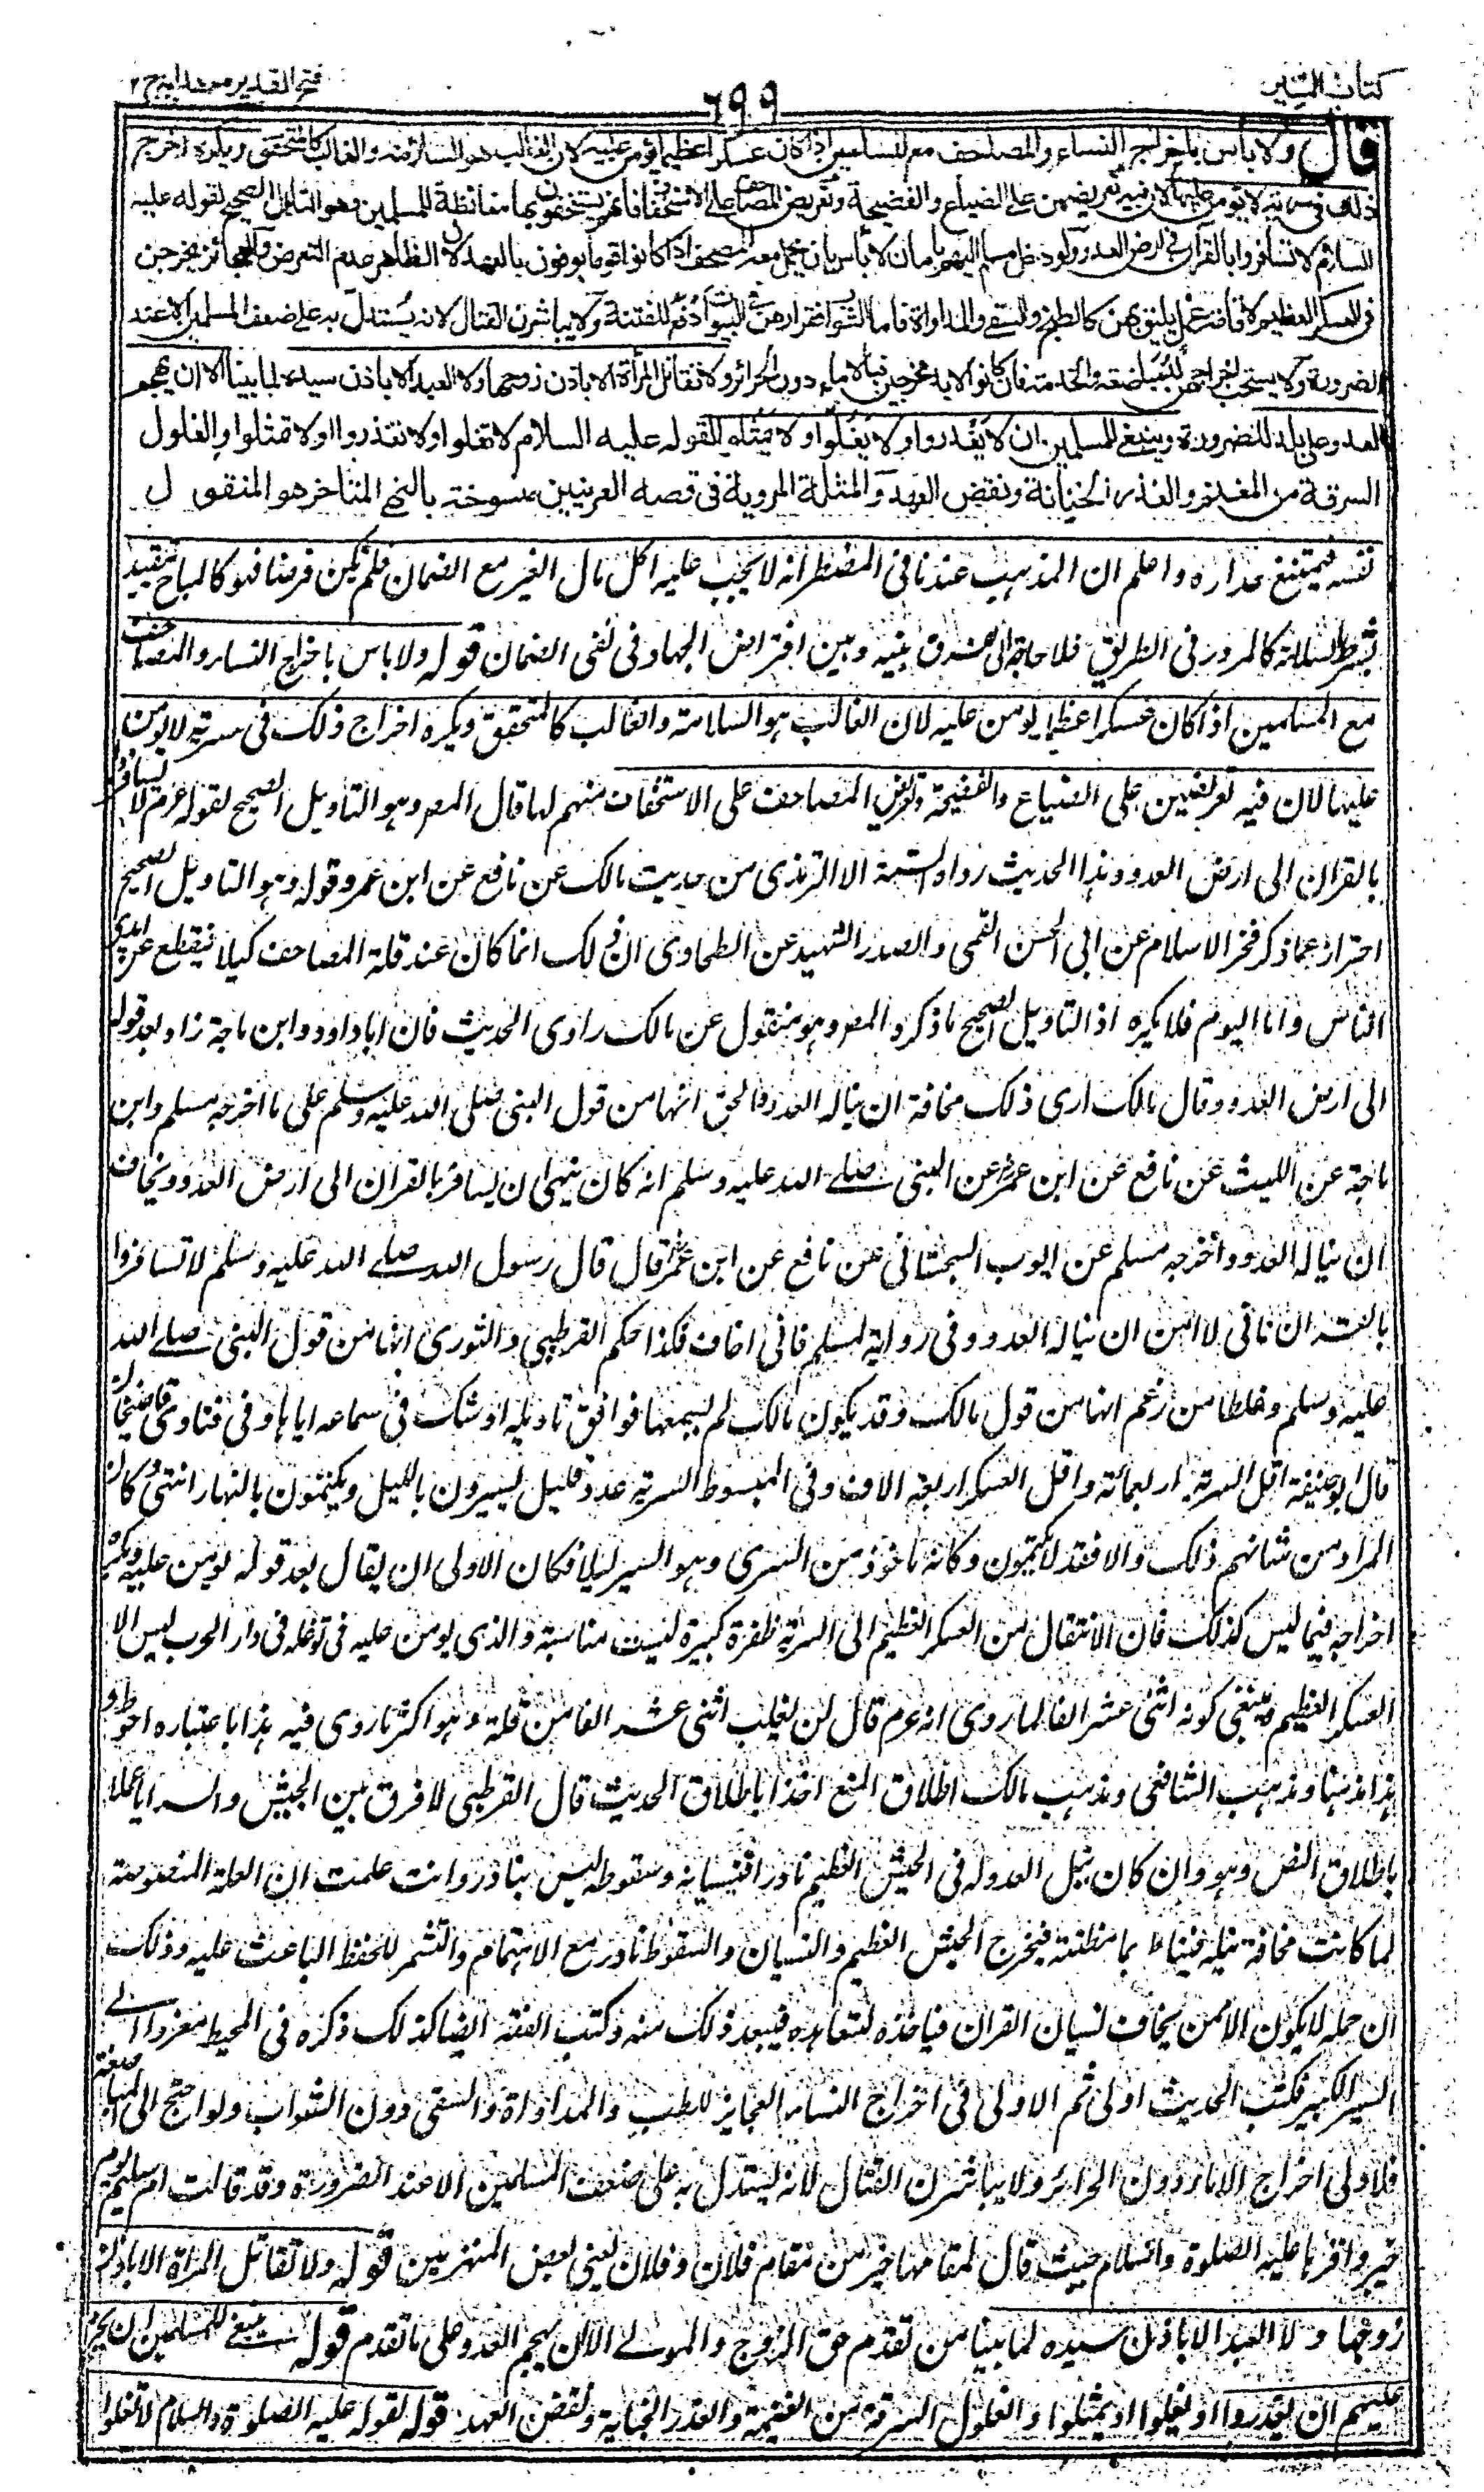 كتاب السير
٦٩٩
فتح القدير مع هداية ج ٢
قال ولا بأس باخراج النساء والمصاحف مع المسلمين اذا كان عسكرا عظيما يؤمن عليه لان الغالب هو السلامة والغالب كالمتحقق ويكره اخراج
ذلك في سرية لا يؤمن عليها لان فيه تعريضهن على الضياع والفضيحة وتعريض المصاحف على الاستخفاف فانهم يستخفون بها مغائظة للمسلمين وهو التاويل الصحيح لقوله عليه
السلام لا تسافروا بالقرآن في ارض العدو ولو دخل مسلم اليهم بامان لا بأس بان يحمل معه المصحف اذا كانوا قوما يوفون بالعهد لان الظاهر عدم التعرض والعجائز يخرجن
في العسكر العظيم لاقامة عمل يليق بهن كالطبخ والسقي والمداواة فاما الشواب فقرارهن في البيوت ادفع للفتنة ولا يباشرن القتال لانه يستدل به على ضعف المسلمين الا عند
الضرورة ولا يستحب اخراجهن للمباضعة والخدمة فان كانوا لابد مخرجين فبالاماء دون الحرائر ولا تقاتل المرأة الا باذن زوجها ولا العبد الا باذن سيده لما بينا الا ان يهجم
العدو على بلد للضرورة وينبغي للمسلمين ان لا يغدروا ولا يغلوا ولا يمثلوا لقوله عليه السلام لا تغلوا ولا تغدروا ولا تمثلوا والغلول
السرقة من المغنم والغدر الخيانة ونقض العهد والمثلة المروية في قصة العرنيين منسوخة بالنهي المتاخر هو المنقول
نفسه فيمتنع مداره واعلم ان المذهب عندنا في المضطر انه لا يجب عليه اكل مال الغير مع الضمان فلم يكن فرضا فهو كالمباح يتقيد
بشرط السلامة كالمرور في الطريق فلا حاجة الى الفرق بينه وبين افتراض الجهاد في نفى الضمان قوله ولا باس باخراج النساء والمصاحف
مع المسلمين اذا كان عسكرا عظيما يومن عليه لان الغالب هو السلامة والغالب كالمتحقق ويكره اخراج ذلك في سرية لا يومن
عليها لان فيه تعريضهن على الضياع والفضيحة وتعريض المصاحف على الاستخفاف منهم لها قال المصر وهو التاويل الصحيح لقوله عرم لا تسافروا
بالقران الى ارض العدو وهذا الحديث رواه الستة الا الترمذى من حديث مالك عن نافع عن ابن عمر وقوله وهو التاويل الصحيح
احتراز عما ذكر فخر الاسلام عن ابى الحسن القمى والصدر الشهيد عن الطحاوى ان ذلك انما كان عند قلة المصاحف كيلا ينقطع عن ايدى
الناس واما اليوم فلا يكره اذ التاويل الصحيح ما ذكره المصر وهو منقول عن مالك راوى الحديث فان ابا داود وابن ماجة زاد بعد قوله
الى ارض العدو وقال مالك ارى ذلك مخافة ان يناله العدو فالحق انها من قول النبى صلى الله عليه وسلم على ما اخرجه مسلم وابن
ماجة عن الليث عن نافع عن ابن عمر عن النبى صلے الله عليه وسلم انه كان ينهى ان يسافر بالقران الى ارض العدو ويخاف
ان يناله العدو واخرجه مسلم عن ايوب السجستانى عن نافع عن ابن عمر قال قال رسول الله صلے الله عليه وسلم لا تسافروا
بالقران فانى لا امن ان يناله العدو وفى رواية لمسلم فانى اخاف فكذا حكم القرطبى والنورى انها من قول النبى صلے الله
عليه وسلم وغلطا من زعم انها من قول مالك وقد يكون مالك لم يسمعها فوافق تاويله او شك فى سماعه اياها وفى فتاوى قاضيخان
قال ابو حنيفة اقل السرية اربعمائة واقل العسكر اربعة الاف وفى المبسوط السرية عدد قليل يسيرون بالليل ويكمنون بالنهار انتهى وكان
المراد من شانهم ذلك والا فقد لا يكمنون وكانه ماخوذ من السرى وهو السير ليلا فكان الاولى ان يقال بعد قوله يومن عليه ويكره
اخراجه فيما ليس كذلك فان الانتقال من العسكر العظيم الى السرية ظفرة كبيرة ليست مناسبة والذى يومن عليه فى توغله فى دار الحرب ليس الا
العسكر العظيم وينبغى كونه اثنى عشر الفا لما روى انه عرم قال لن يغلب اثنى عشر الفا من قلة وهو اكثر ما روى فيه هذا باعتباره احوط و
هذا مذهبنا ومذهب الشافعى ومذهب مالك اطلاق المنع اخذا باطلاق الحديث قال القرطبى لا فرق بين الجيش والسرايا عملا
باطلاق النص وهو وان كان نيل العدو له فى الجيش العظيم نادرا فنسيانه وسقوطه ليس بنادر وانت علمت ان العلة المنصوصة
لما كانت مخافة نيله فيناط بما مظنته فيخرج الجيش العظيم والنسيان والسقوط نادر مع الاهتمام والتشمر للحفظ الباعث عليه وذلك
ان حمله لا يكون الا ممن يخاف نسيان القران فياخذه ليتعاهده فيبعد ذلك منه وكتب الفقه ايضا كذلك ذكره فى المحيط معزوا الے
السير الكبير فكتب الحديث اولى ثم الاولى فى اخراج النساء العجايز للطب والمداواة والسقى دون الشواب ولو احتيج الى المباضعة
فلاولى اخراج الاماء دون الحرائر ولا يباشرن القتال لانه يستدل به على ضعف المسلمين الا عند الضرورة وقد قالت ام سليم يوم
خيبر واقرها عليه الصلوة والسلام حيث قال لمقامها خير من مقام فلان وفلان يعنى بعض المنهزمين قوله ولا تقاتل المراة الا باذن
زوجها ولا العبد الا باذن سيده لما بينا من تقدم حق الزوج والمولے الا ان يهجم العدو على ما تقدم قوله ينبغے للمسلمين ان يحرم
عليهم ان يغدروا او يغلوا او يمثلوا والغلول السرقة من الغنيمة والغدر الخيانة ونقض العهد قوله لقوله عليه الصلوة والسلام لا تغلوا